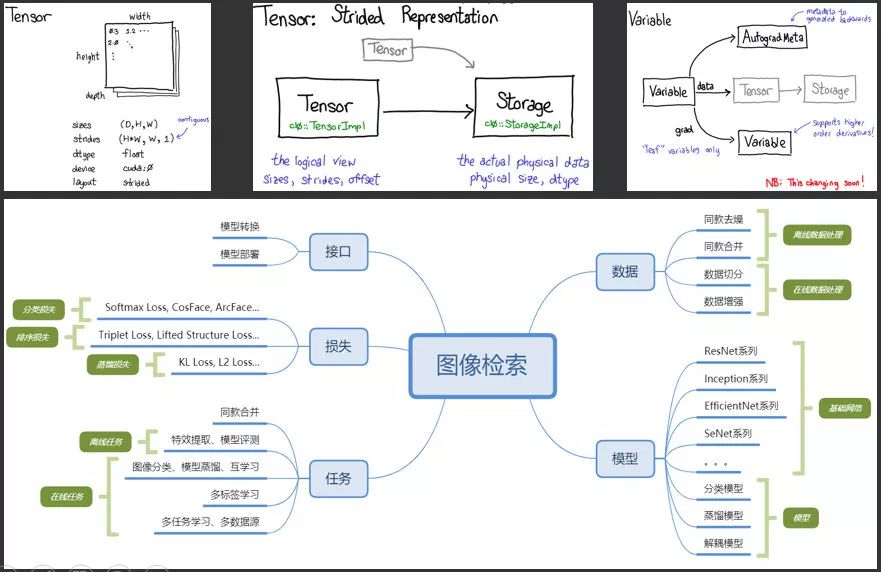 Tensor
width
0.3 1.2 ...
2.0
height
depth
sizes (D, H, W)
strides (H*W, W, 1)
contiguous
dtype float
device cuda:0
layout strided
Tensor: Strided Representation
Tensor
Tensor
c10::TensorImpl
Storage
c10::StorageImpl
the logical view
sizes, strides, offset
the actual physical data
physical size, dtype
Variable
metadata to
generated backwards
AutogradMeta
Variable
data
Tensor
Storage
grad
"leaf" variables only
Variable
supports higher
order derivatives!
NB: This changing soon!
图像检索
接口
模型转换
模型部署
损失
分类损失
Softmax Loss, CosFace, ArcFace...
排序损失
Triplet Loss, Lifted Structure Loss...
蒸馏损失
KL Loss, L2 Loss...
任务
同款合并
离线任务
特效提取、模型评测
在线任务
图像分类、模型蒸馏、互学习
多标签学习
多任务学习、多数据源
数据
同款去燥
同款合并
离线数据处理
数据切分
数据增强
在线数据处理
模型
ResNet系列
Inception系列
EfficientNet系列
SeNet系列
。。。
基础网络
分类模型
蒸馏模型
解耦模型
模型